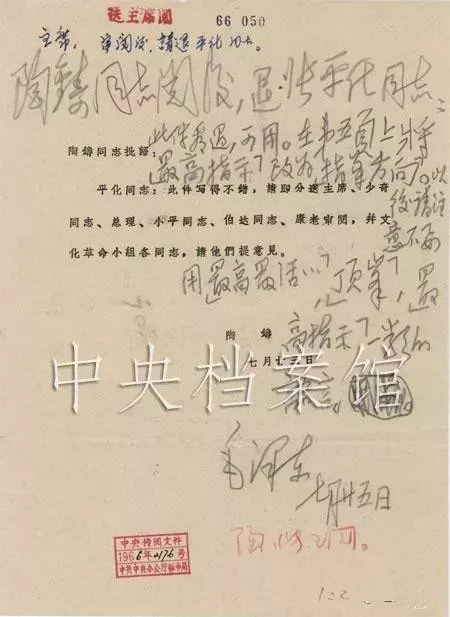 送主席閱
66 050
主席：审阅后，請退平化同志。
陶鑄同志阅后，退张平化同志：
此件看过，可用。在第五頁上将
「最高指示」改为「指導方向」。以
后请注
意不要
用「最高最活…」，「顶峯」，「最
高指示」一类的
語言。
毛泽东
七月廿五日
陶鑄同志批語：
平化同志：此件写得不錯，請即分送主席、少奇
同志、总理、小平同志、伯达同志、康老审閱，幷文
化革命小組各同志，請他們提意見。
陶 鑄
七月廿三日
中央档案馆
中央传閱文件
1966年2176号
中共中央办公厅秘书局
陶铸已阅。
122